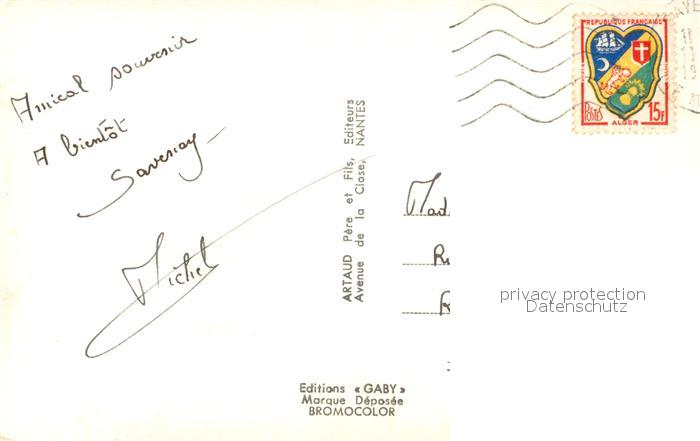 Amical souvenir
A bientôt
Savenay
Michel
ARTAUD Père et Fils, Editeurs
Avenue de la Close, NANTES
Editions « GABY »
Marque Déposée
BROMOCOLOR
REPUBLIQUE FRANÇAISE
POSTES
15F
ALGER
privacy protection
Datenschutz